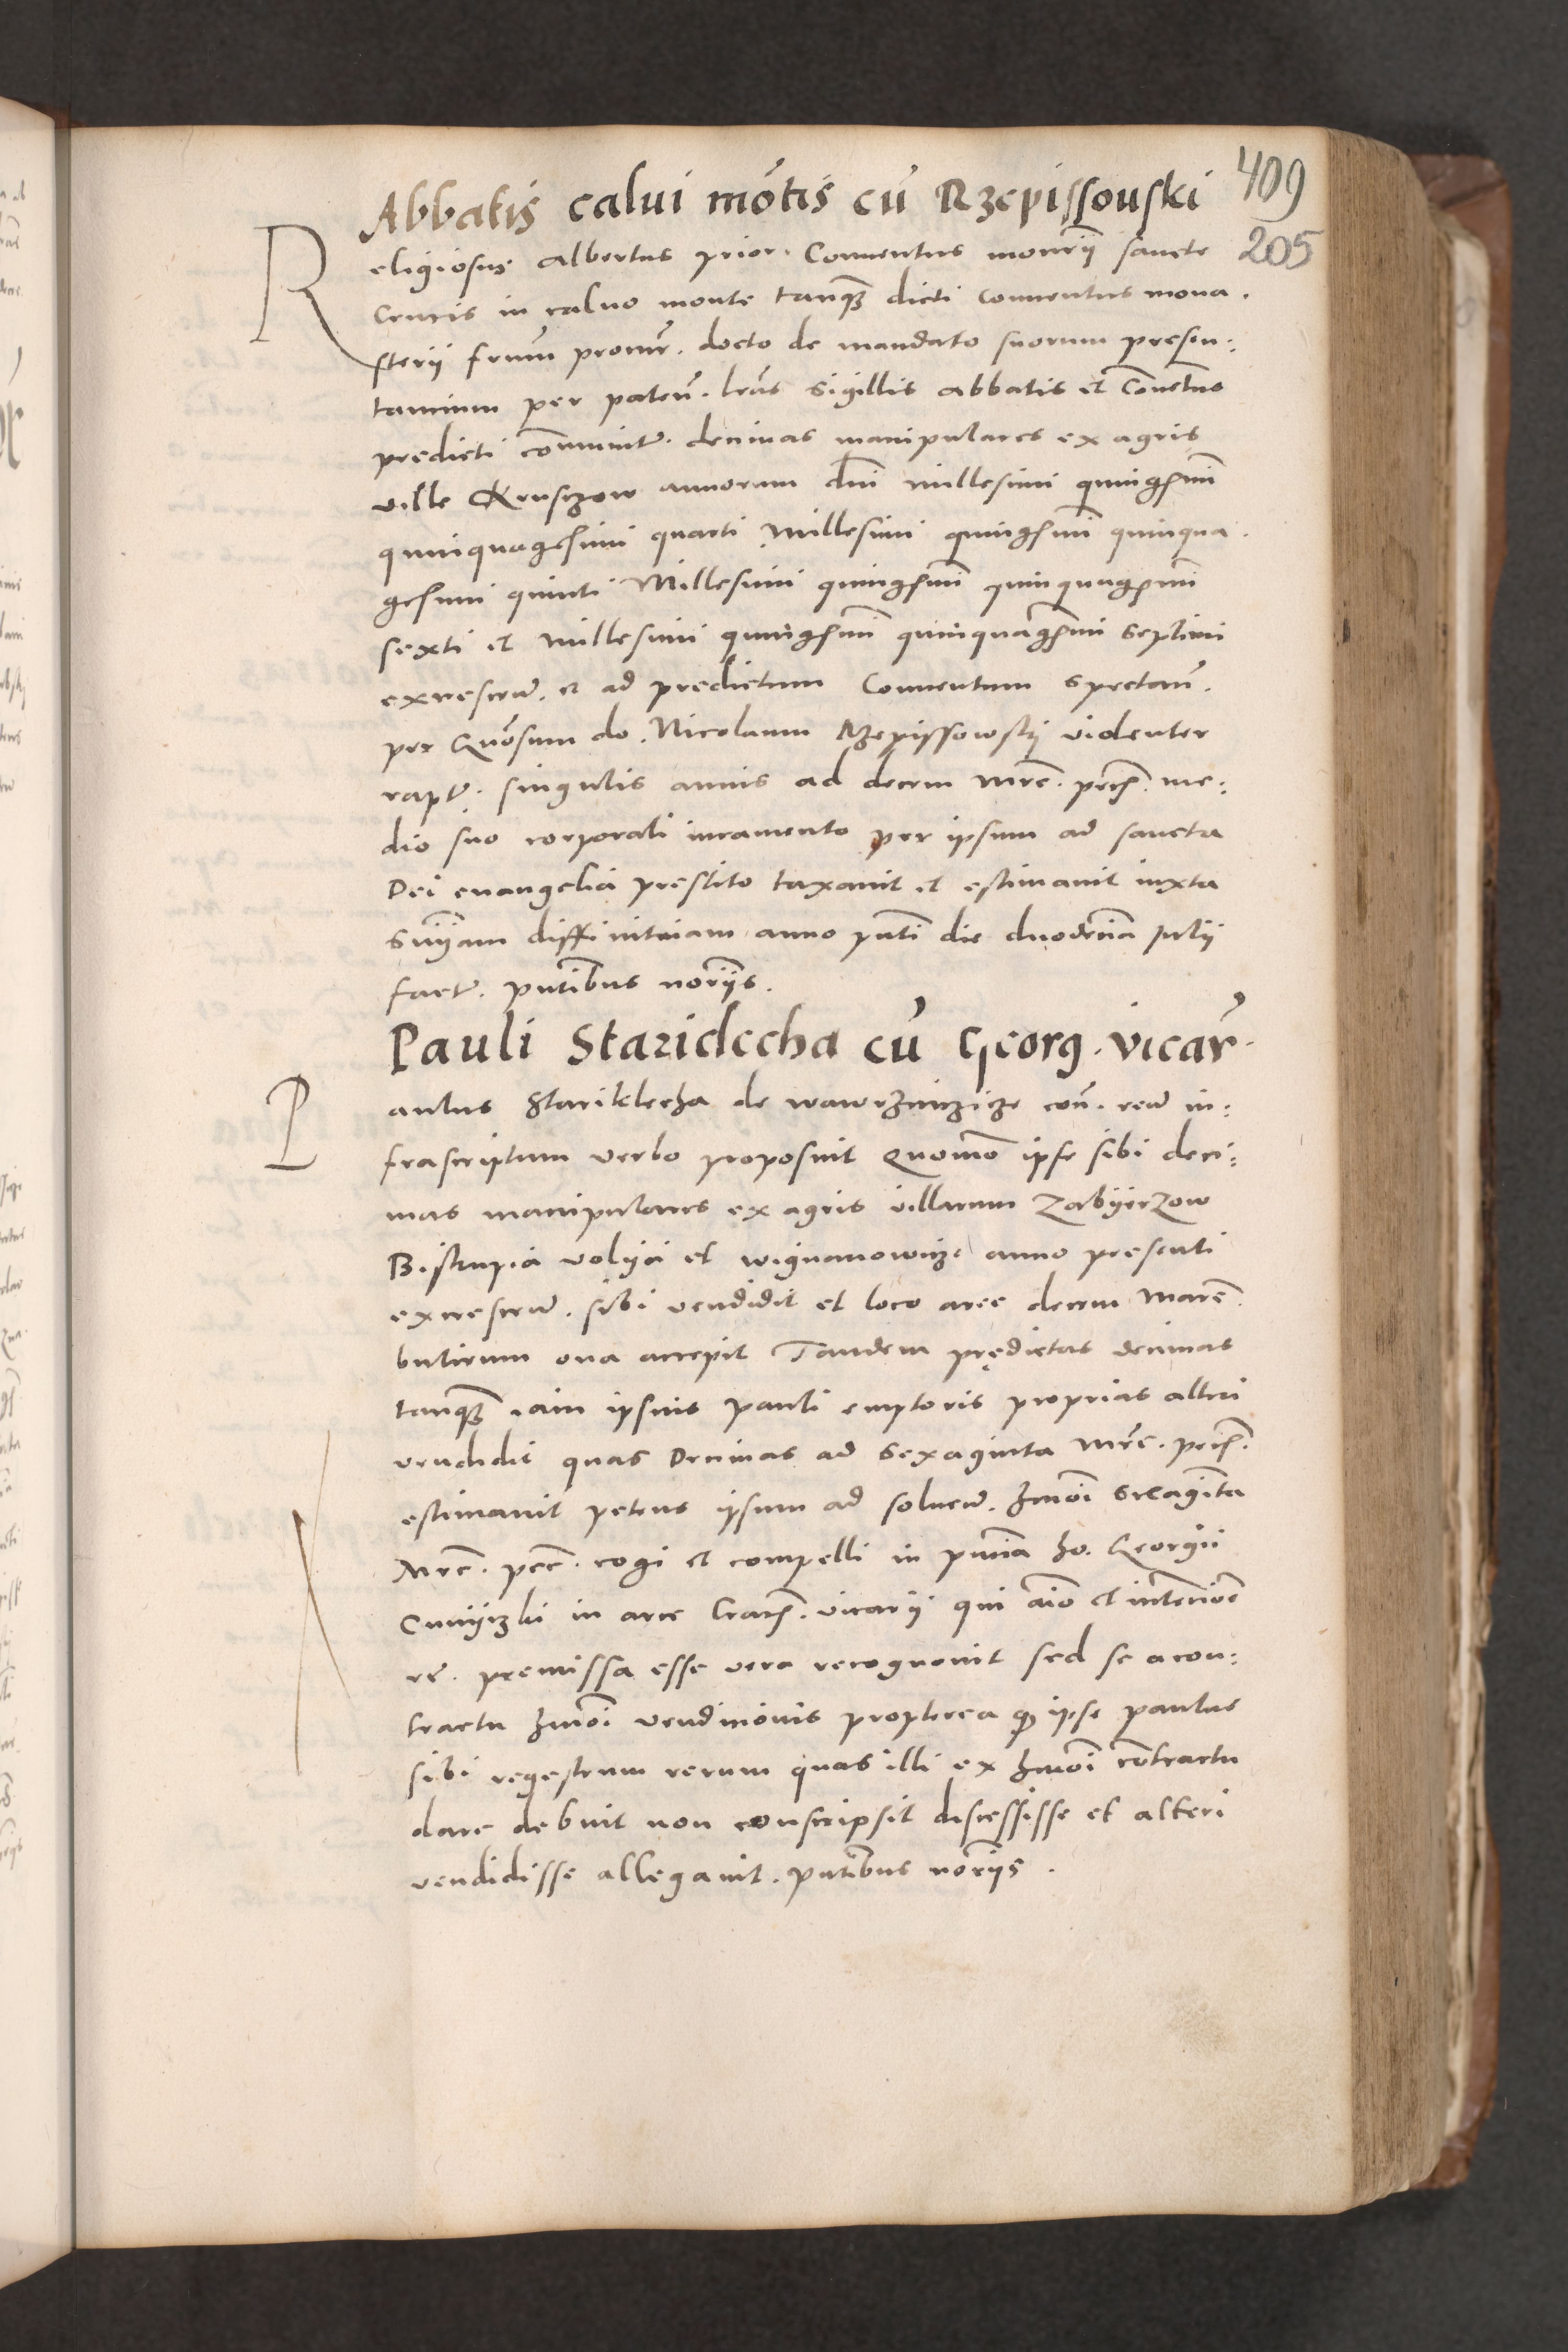 409
Abbatis calui mōtis cū Rzepissouski
205
Religiosus Albertus prior Conuentus monrii sancte
Crucis in caluo monte tanq̄ dicti Conuentus mona.
sterii frum procur. docto de mandato suorum presen:
tancium per paten. lras sigillis Abbatis et Conuētus
predicti communit. decimas manipulares ex agris
ville Kruschow annorum dni millesimi quingsmi
quinquagesimi quarti Millesimi quingsmi quinqua.
gesimi quinti Millesimi quingsmi quinquagsmi
sexti et millesimi quingsmi quinquagsmi septimi
excrescen. et ad predictum Conuentum spectan.
per Gnosum do. Nicolaum Rzepissowsky violenter
rapt. singulis annis ad decem mrc. pcch. me:
dio suo corporali iuramento per ipsum ad sancta
Dei euangelia prestito taxauit et estimauit iuxta
sniam diffinitiuam anno pnti die duodecia Julii
fact. pntibus noriis.
Pauli Staridecha cū Georg. vicar.
Paulus Stariklecha de wawrzinczicze con. reum in:
frascriptum verbo proposuit Quomo ipse sibi deci:
mas manipulares ex agris villarum Zabyerzow
Biskupia volya et wignanowicze anno presenti
excrescen. sibi vendidit et loco arre decem marc.
butirum oua accepit Tandem prędictas decimas
tanq̄ iam ipsius Pauli emptoris proprias alteri
vendidit quas Decimas ad sexaginta mrc. pcch.
estimauit petens ipsum ad soluen. hmoi sexaginta
Mrc. pcc. cogi et compelli in pntia ho. Georgii
in arce Crac. vicarii qui aio et intencione
re. premissa esse vera recognouit sed se a con:
tractu hmoi vendicionis propterea q ipse Paulus
sibi regestrum rerum quas illi ex hmoi contractu
dare debuit non conscripsit discessisse et alteri
vendidisse allegauit. pntibus noriis.